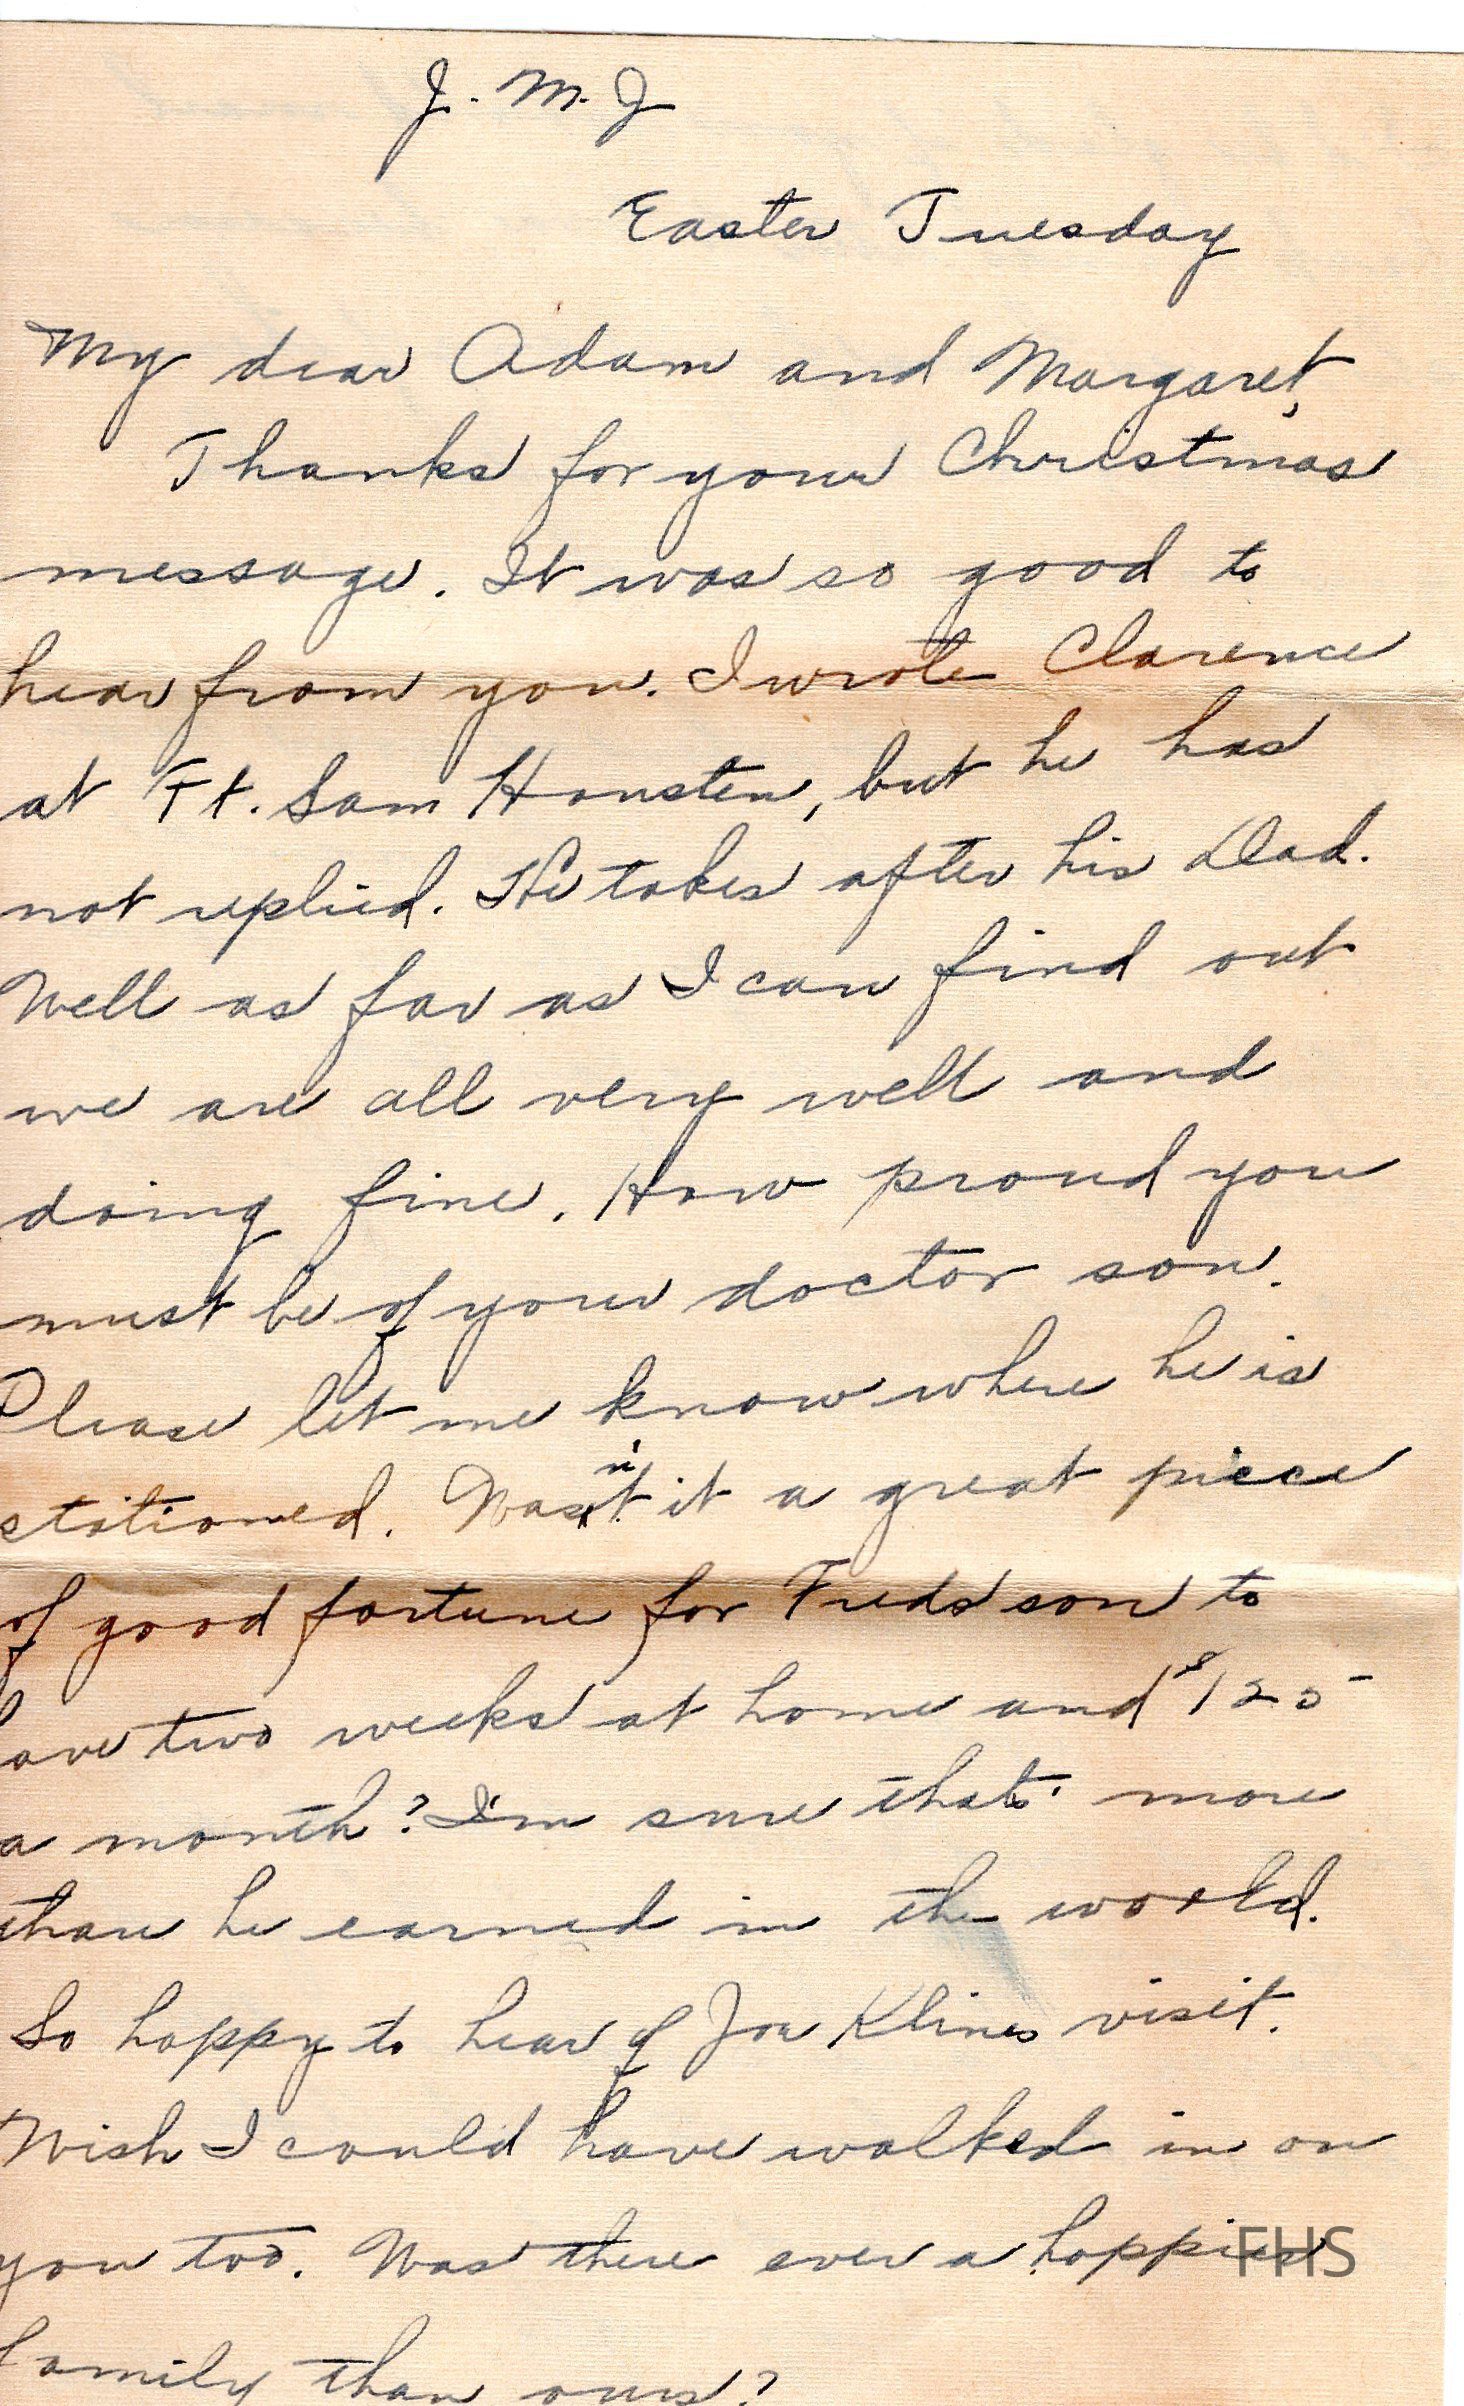 J. M. J
Easter Tuesday
My dear Adam and Margaret,
Thanks for your Christmas
message. It was so good to
hear from you. I wrote Clarence
at Ft. Sam Housten, but he has
not replied. He takes after his Dad.
Well as far as I can find out
we are all very well and
doing fine. How proud you
must be of your doctor son.
Please let me know where he is
stationed. Wasn't it a great piece
of good fortune for Freds son to
have two weeks at home and $125
a month? I'm sure that's more
than he earned in the world.
So happy to hear of Joe Klines visit.
Wish I could have walked in on
you too. Was there ever a happier
family than ours?
FHS